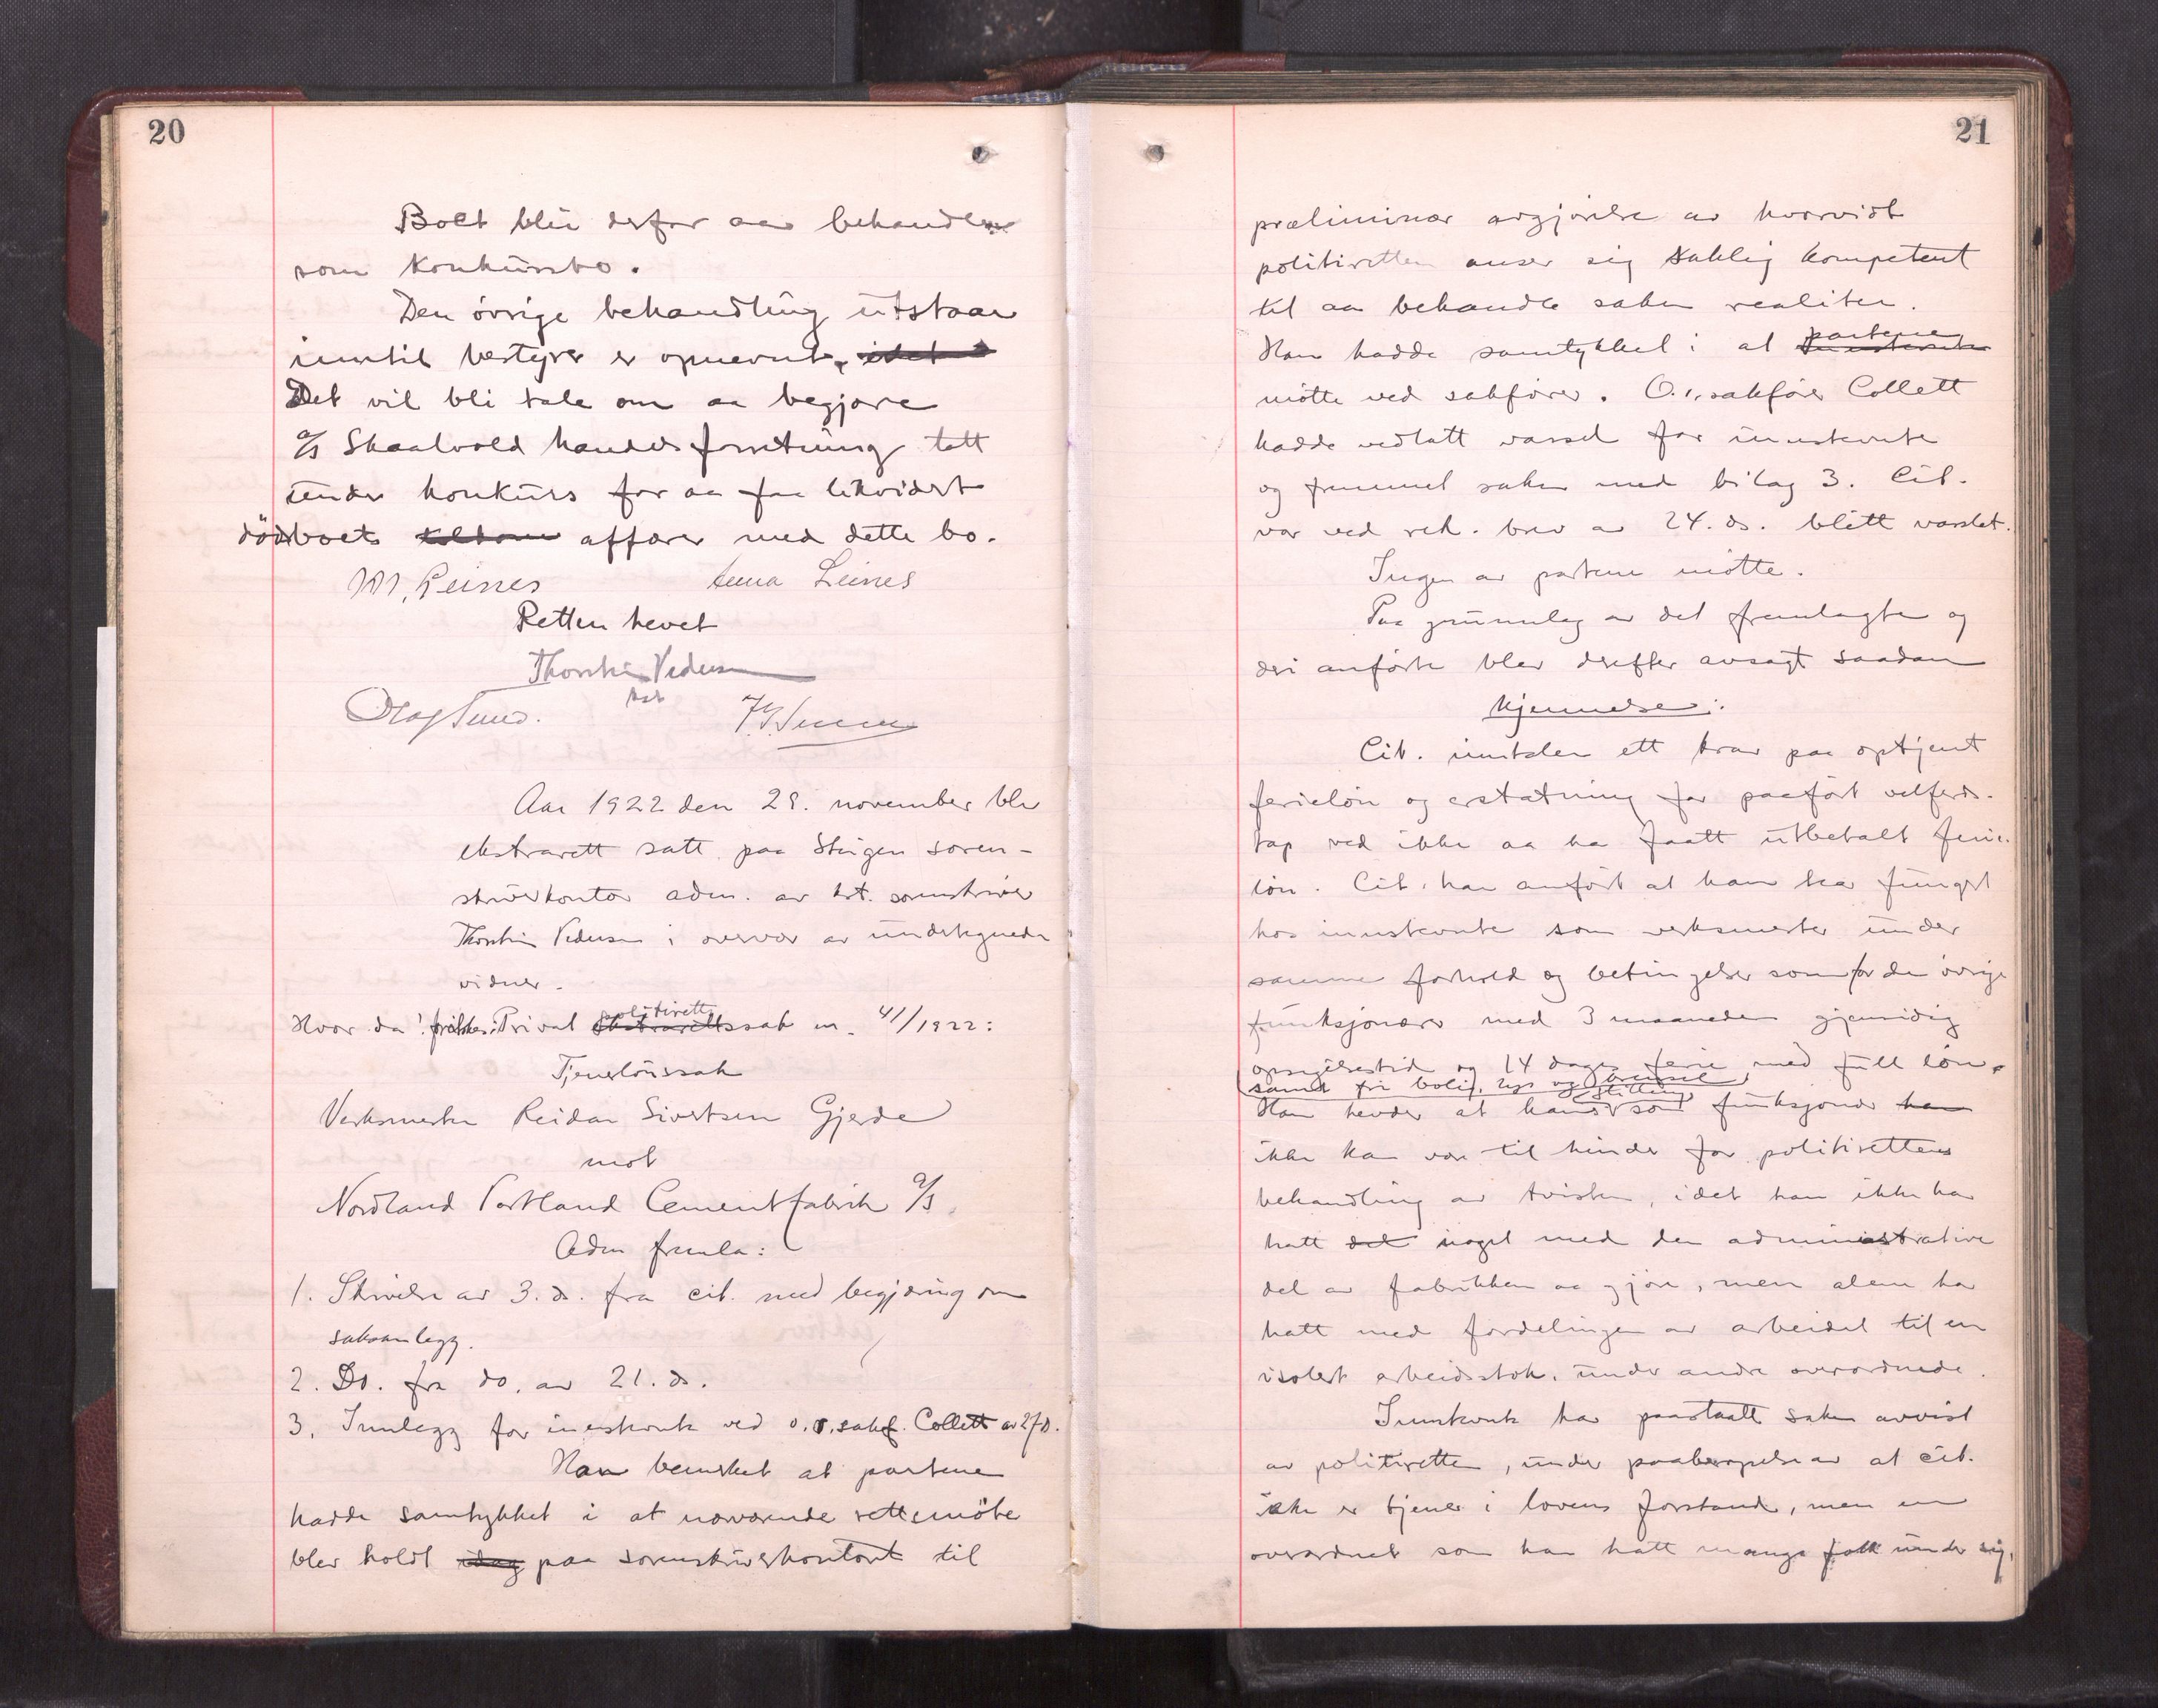 20
Boet blir derfor aa behandle
som konkursbo.
Den övrige behandling utstaar
inntil bestyrer er opnevnt, idet
Det vil bli tale om aa begjære
a/s Skaalvold handelsforretning tatt
under konkurs for aa faa likvidert
dödsboets affærer med dette bo.
M. Leines Anna Leines
Retten hevet
Thorstein Pedersen
kst
Olaf Sund.
Aar 1922 den 28. november blev
ekstrarett satt paa Steigen soren-
skriverkontor adm. av kst. sorenskriver
Thorstein Pedersen i overvær av undertegnede
vidner.
Hvor da Privat politiretts ekstrarettssak nr. 41/1922:
Tjenerlönssak
Verksmester Reidar Sivertsen Gjerde
mot
Nordland Portland Cementfabrik a/s.
Adm fremla:
1. Skrivelse av 3. ds. fra cit. med begjæring om
saksanlegg.
2. Do. fra do. av 21. ds.
3. Innlegg for innstevnte ved o.r.sakf. Collett av 27 ds.
Han bemerket at partene
hadde samtykket i at nærværende rettsmöte
blev holdt idag paa sorenskriverkontoret til
21
præliminær avgjörelse av hvorvidt
politiretten anser sig saklig kompetent
til aa behandle saken realiter.
Han hadde samtykket i at partene innstevnte
mötte ved sakförer. O.r.sakförer Collett
hadde vedtatt varsel for innstevnte
og fremmet saken med bilag 3. Cit.
var ved rek. brev av 24. ds. blitt varslet.
Ingen av partene mötte.
Paa grunnlag av det fremlagte og
deri anförte blev derefter avsagt saadan
kjennelse:
Cit. inntaler ett krav paa optjent
ferielön og erstatning for paafört velferds-
tap ved ikke aa ha faatt utbetalt ferie-
lön. Cit. har anfört at han har fungert
hos innstevnte som verksmester under
samme forhold og betingelser som for de övrige
funksjonærer med 3 maaneders gjensidig
opsigelsestid og 14 dages ferie med full lön,
samt fri bolig, lys og brensel
Han hevder at hans stilling som funksjonær han
ikke kan være til hinder for politirettens
behandling av tvisten, idet han ikke har
hatt det noget med den administrative
del av fabrikken aa gjöre, men alene har
hatt med fordelingen av arbeidet til en
isolert arbeidsstok, under andre overordnede.
Innstevnte har paastaatt saken avvist
av politiretten, under paaberopelse av at cit.
ikke er tjener i lovens forstand, men en
overordnet som har hatt mange folk under sig,